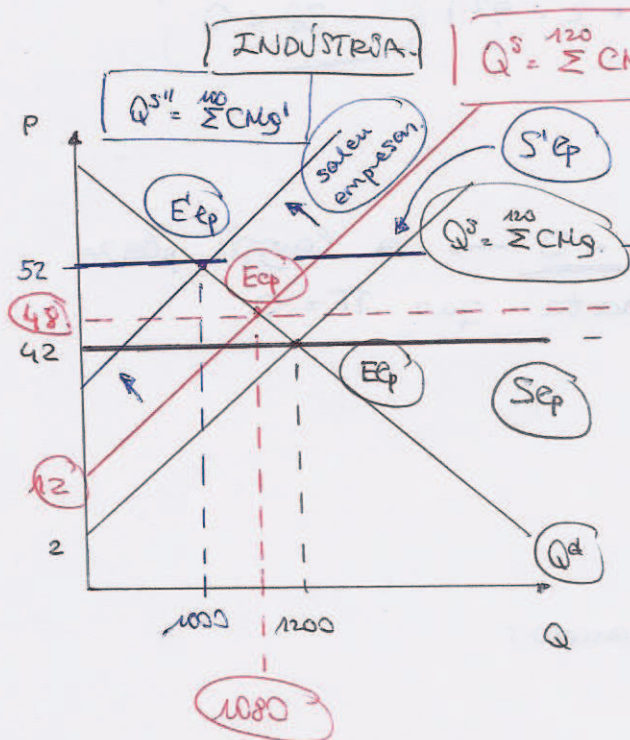 INDÚSTRIA.
Q^s = Σ^120 CM
Q^s'' = Σ^100 CMg'
P
salen
empresas.
S'ep
E'ep
Q^s = Σ^120 CMg.
52
Eep
48
42
Eep'
Sep
12
2
Q^d
1000
1200
Q
1080